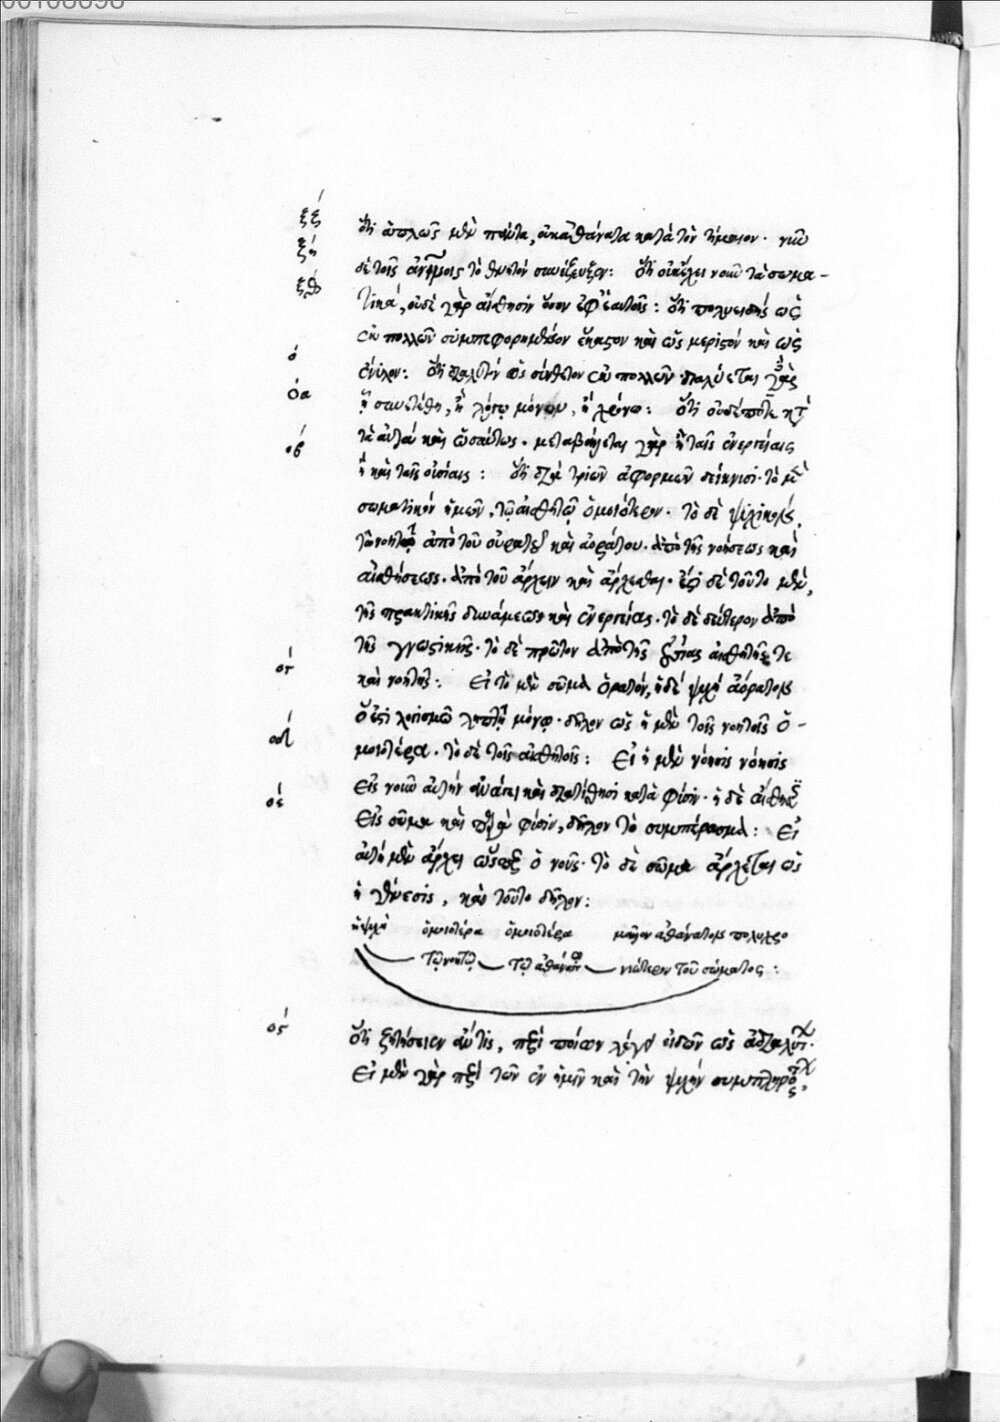 ξζ
ὅτι ἁπλῶς μὲν πάντα, οὐκ ἀθάνατα κατὰ τὸν τίμαιον. νῦν
ξη
δὲ τοῖς τὸ θνητὸν συνέζευξεν: ὅτι οὐκ ἔχει νοῦν τὰ σωμα-
ξθ
τικά, οὐδὲ γὰρ αἴσθησιν ὅσον ἐφ' ἑαυτοῖς: ὅτι πολυειδὴς ὡς
ἐκ πολλῶν συμπεφορημένον ἕκαστον καὶ ὡς μεριστὸν καὶ ὡς
ο
ἔνυλον: ὅτι πᾶν τὸ σύνθετον ἐκ πολλῶν διαλύεται
οα
ᾗ συνετέθη, ἢ λόγῳ μόνῳ, ἢ χρόνῳ: ὅτι οὐδέποτε κατὰ
τὰ αὐτὰ καὶ ὡσαύτως. μεταβάλλεται γὰρ ἢ ταῖς ἐνεργείαις
οβ
ἢ καὶ ταῖς οὐσίαις: ὅτι διὰ τριῶν ἀφορμῶν δείκνυσι τὸ μὲν
σωματικὸν ἡμῶν, τῷ αἰσθητῷ ὁμοιότερον. τὸ δὲ ψυχικὸν,
τῷ νοητῷ ἀπὸ τοῦ ὁρατοῦ καὶ ἀοράτου. ἀπὸ τῆς νοήσεως καὶ
αἰσθήσεως. ἀπὸ τοῦ ἄρχειν καὶ ἄρχεσθαι. ἔστι δὲ τοῦτο μὲν,
τῆς πρακτικῆς δυνάμεως καὶ ἐνεργείας. τὸ δὲ δεύτερον ἀπὸ
τῆς γνωστικῆς. τὸ δὲ πρῶτον ἀπὸ τῆς οὐσίας αἰσθητῆς τε
ογ
καὶ νοητῆς: Εἰ τὸ μὲν σῶμα ὁρατὸν, ἡ δὲ ψυχὴ ἀόρατον
ὅ ἐστι λογισμῷ ληπτὴ μόνῳ. δῆλον ὡς ἡ μὲν τοῖς νοητοῖς ὁ-
οδ
μοιοτέρα. τὸ δὲ τοῖς αἰσθητοῖς: Εἰ ἡ μὲν νόησις νόησις
εἰς νοῦν αὐτὴν ἀνάπτει καὶ διατίθησι κατὰ φύσιν. ἡ δὲ αἴσθησις
οε
εἰς σῶμα καὶ παρὰ φύσιν, δῆλον τὸ συμπέρασμα: Εἰ
αὐτὴ μὲν ἄρχει ὥσπερ ὁ νοῦς. τὸ δὲ σῶμα ἄρχεται ὡς
ἡ γένεσις, καὶ τοῦτο δῆλον:
ἡ ψυχὴ ὁμοιοτέρα ὁμοιοτέρα μᾶλλον ἀθάνατον πολυχρο
τῷ νοητῷ τῷ ἀθανάτῳ νιώτερον τοῦ σώματος:
ος
ὅτι ζητήσειεν ἄν τις, περὶ ποίων λέγει εἰδῶν ὡς ἀδιαλύτων.
Εἰ μὲν γὰρ περὶ τῶν ἐν ἡμῖν καὶ τὴν ψυχὴν συμπληρούντων,